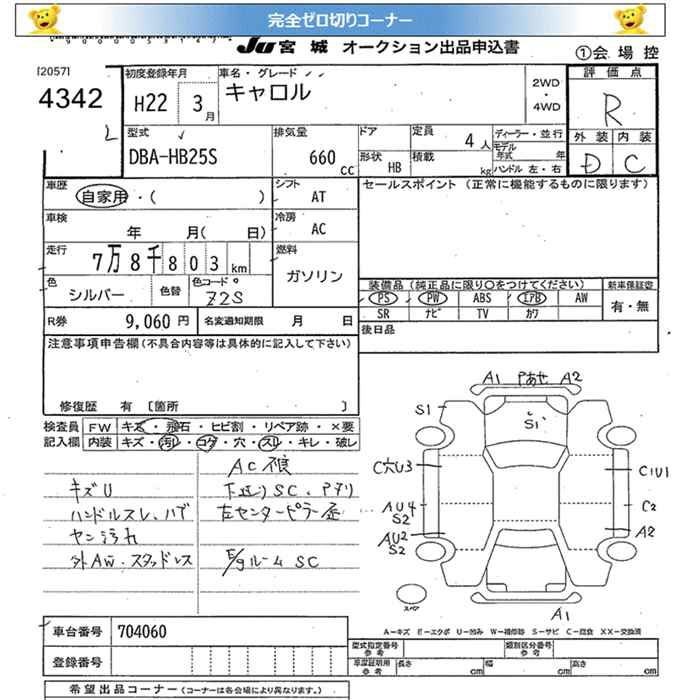 完全ゼロ切りコーナー
JU 宮城 オークション出品申込書
①会場控
[2057]
4342
L
初度登録年月
H22 3月
車名・グレード
キャロル
2WD・4WD
評価点
R
外装 内装
D C
型式
DBA-HB25S
排気量
660 CC
ドア
形状 HB
定員 4人
積載 kg
ディーラー・並行
モデル年式 年
ハンドル 左・右
車歴
自家用・( )
シフト
AT
セールスポイント (正常に機能するものに限ります)
車検
年 月( 日)
冷房
AC
走行
7万8千803 km
燃料
ガソリン
色
シルバー
色替
色コードNo
Z2S
装備品 (純正品に限り○をつけてください)
新車保証書
PS PW ABS エアB AW
SR ナビ TV カワ
有・無
R券 9,060円
名変通知期限 月 日
後日品
注意事項申告欄(不具合内容等は具体的に記入して下さい)
修復歴 有 〔箇所 〕
検査員記入欄
FW キズ・飛石・ヒビ割・リペア跡・×要
内装 キズ・汚れ・コゲ・穴・スレ・キレ・破レ
AC不良
キズU
下廻りSC、アタリ
ハンドルスレ、ハゲ
左センターピラー歪
ヤニ汚れ
外AW・スタッドレス
E/gルームSC
A1 Pあせ A2
S1
S1
C穴U3
C1U1
AU4
S2
C2
AU2
S2
A2
スペア
A1
A-キズ E-エクボ U-凹み W-補修跡 S-サビ C-腐食 XX-交換済
車台番号 704060
登録番号
型式指定番号 参考
類別区分番号 参考
車庫証明用 参考
長さ cm
幅 cm
高さ cm
希望出品コーナー (コーナーは各会場により異なります。)